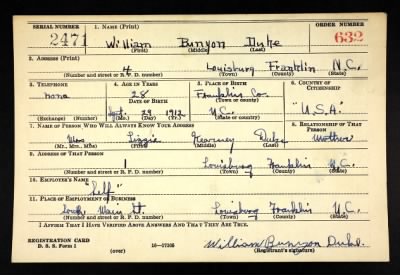 SERIAL NUMBER 1. NAME (Print) ORDER NUMBER
2471 William Bunyon Duke 632
(First) (Middle) (Last)
2. ADDRESS (Print)
4 Louisburg Franklin N.C.
(Number and street or R. F. D. number) (Town) (County) (State)
3. TELEPHONE 4. AGE IN YEARS 5. PLACE OF BIRTH 6. COUNTRY OF CITIZENSHIP
none 28 Franklin Co.
DATE OF BIRTH (Town or county)
29 1912 N.C. "U.S.A."
(Exchange) (Number) (Mo.) (Day) (Yr.) (State or country)
7. NAME OF PERSON WHO WILL ALWAYS KNOW YOUR ADDRESS 8. RELATIONSHIP OF THAT PERSON
Mrs Lizzie Kearney Duke Mother
(Mr., Mrs., Miss) (First) (Middle) (Last)
9. ADDRESS OF THAT PERSON
1 Louisburg Franklin N.C.
(Number and street or R. F. D. number) (Town) (County) (State)
10. EMPLOYER'S NAME
"Self"
11. PLACE OF EMPLOYMENT OR BUSINESS
South Main St. Louisburg Franklin N.C.
(Number and street or R. F. D. number) (Town) (County) (State)
I AFFIRM THAT I HAVE VERIFIED ABOVE ANSWERS AND THAT THEY ARE TRUE.
REGISTRATION CARD
D. S. S. Form 1 (over) 16—17105 William Bunyon Duke
(Registrant's signature)